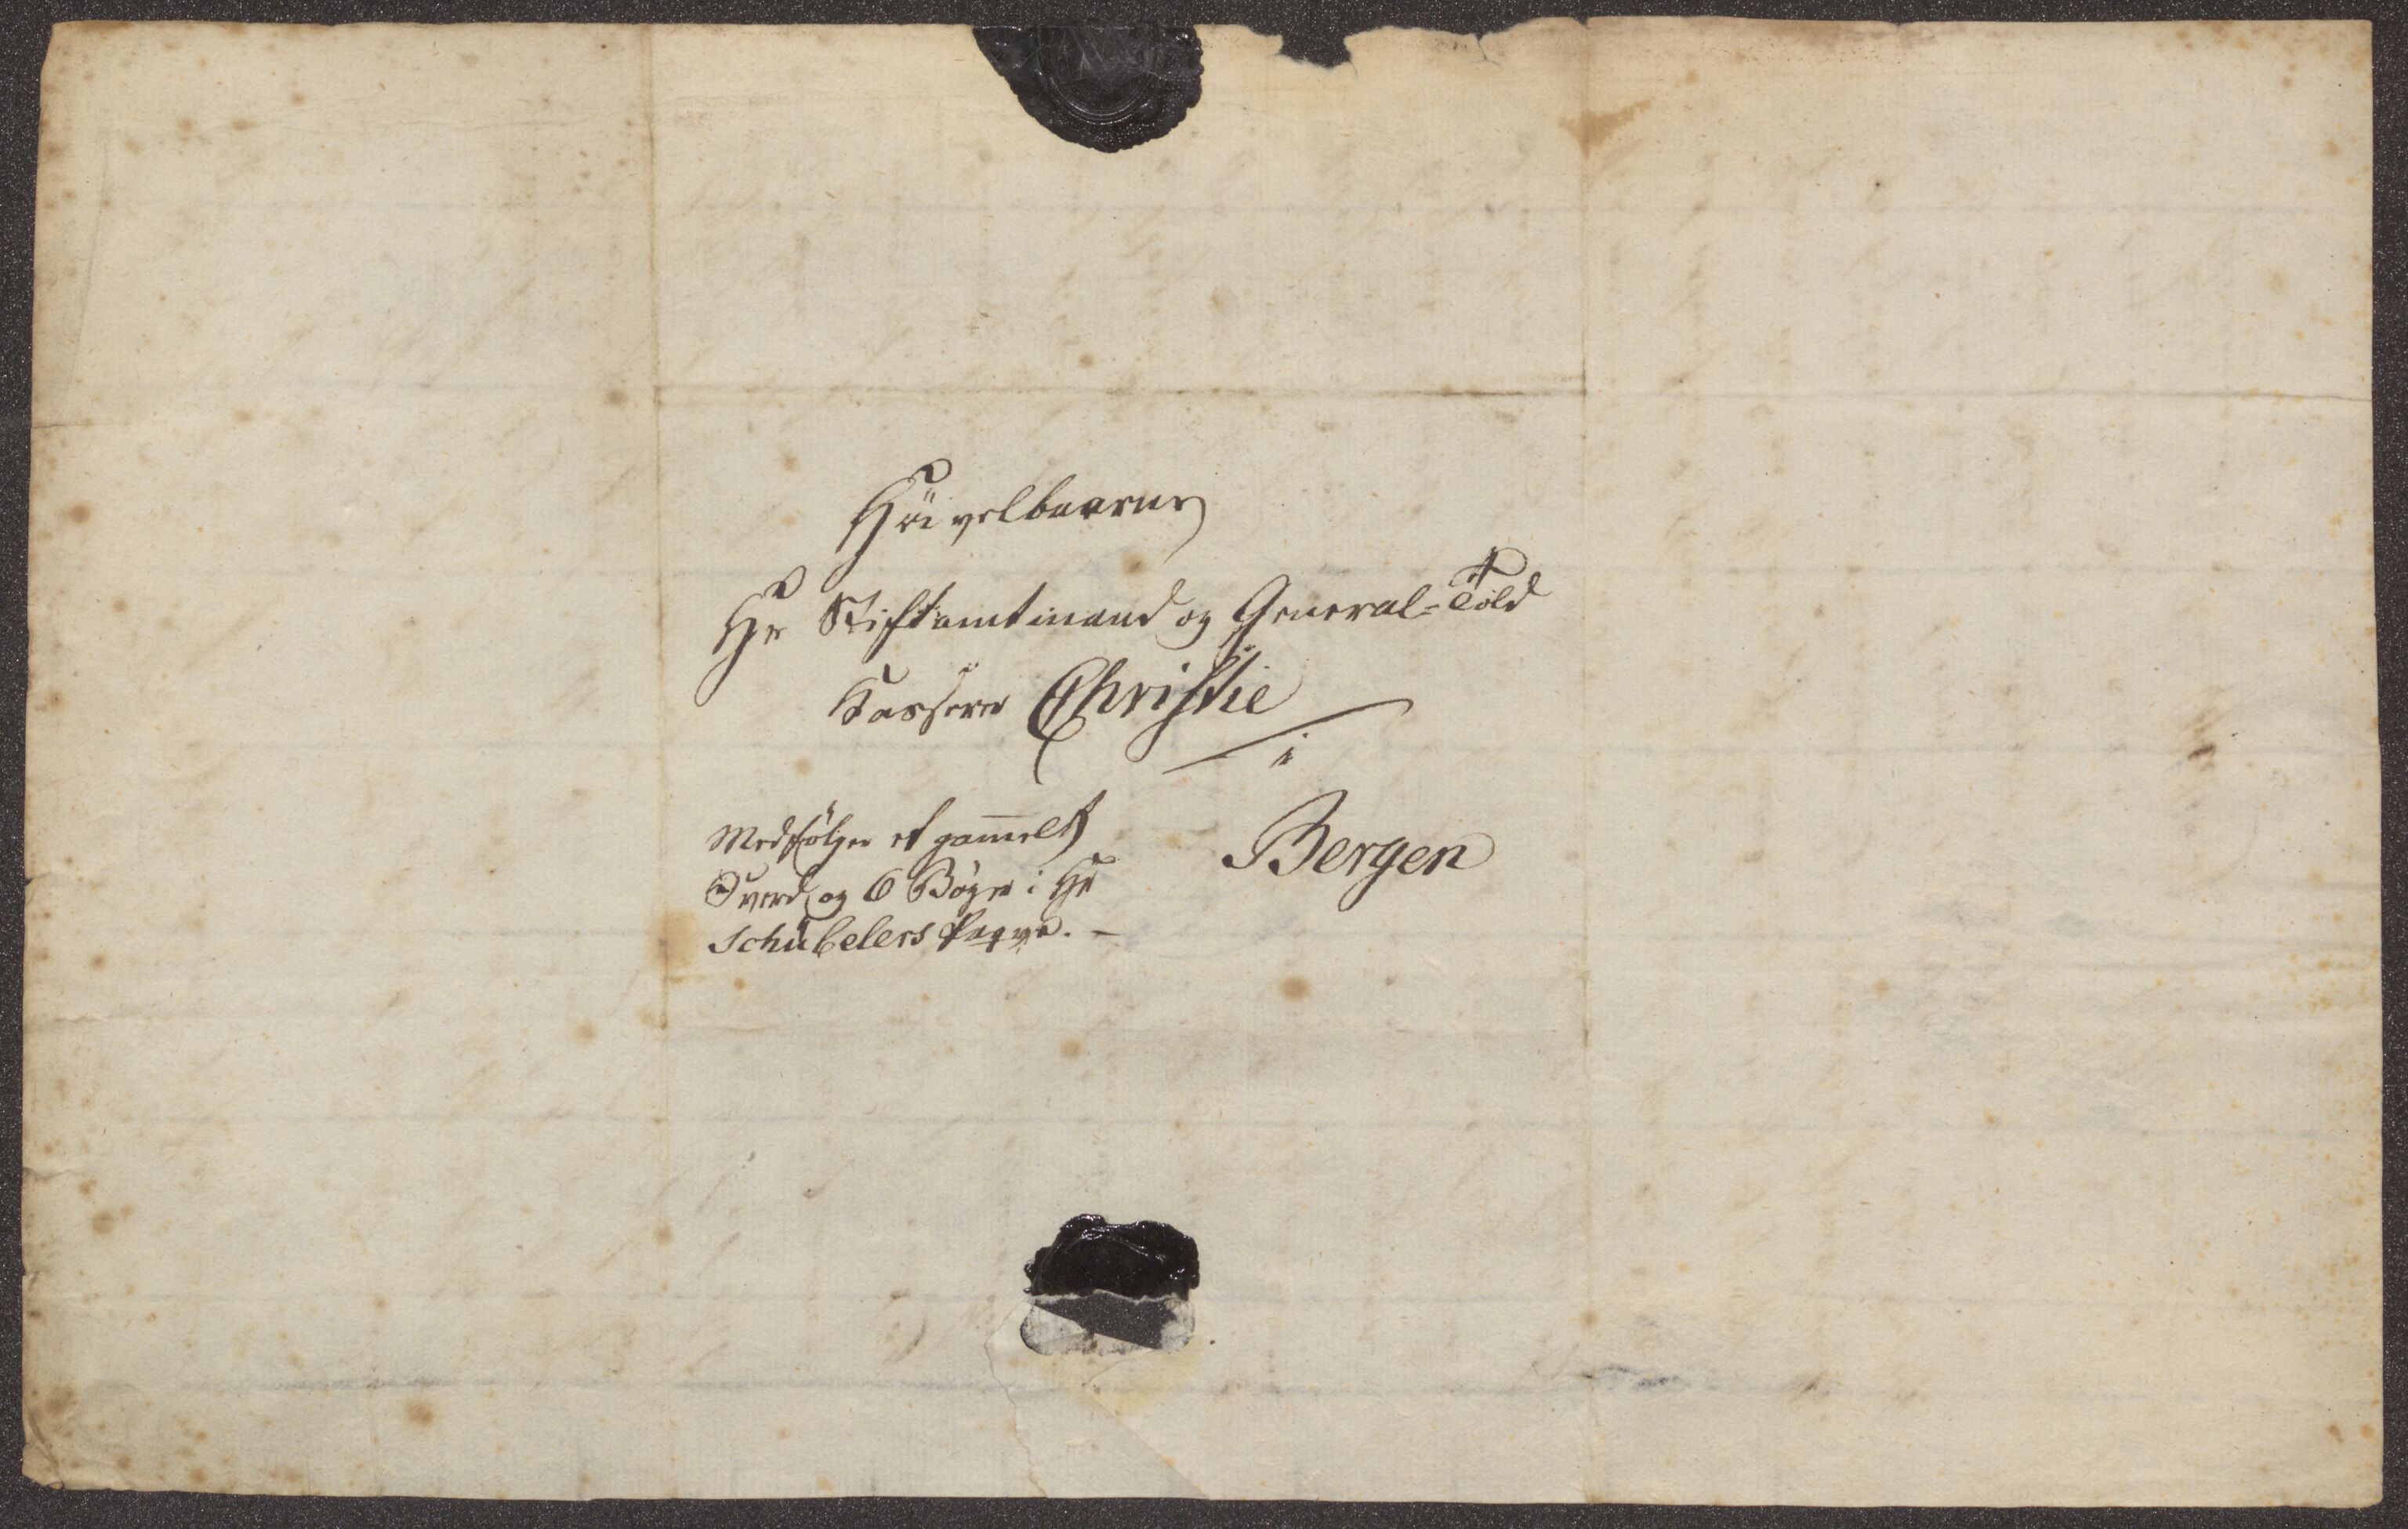 Höivelbaarne
Hr Stiftamtmand og General-Told
Kasserer Christie
i
Bergen
Medfölger et gam̅elt
Sverd og 6 Bøger i Hr
Schübelers